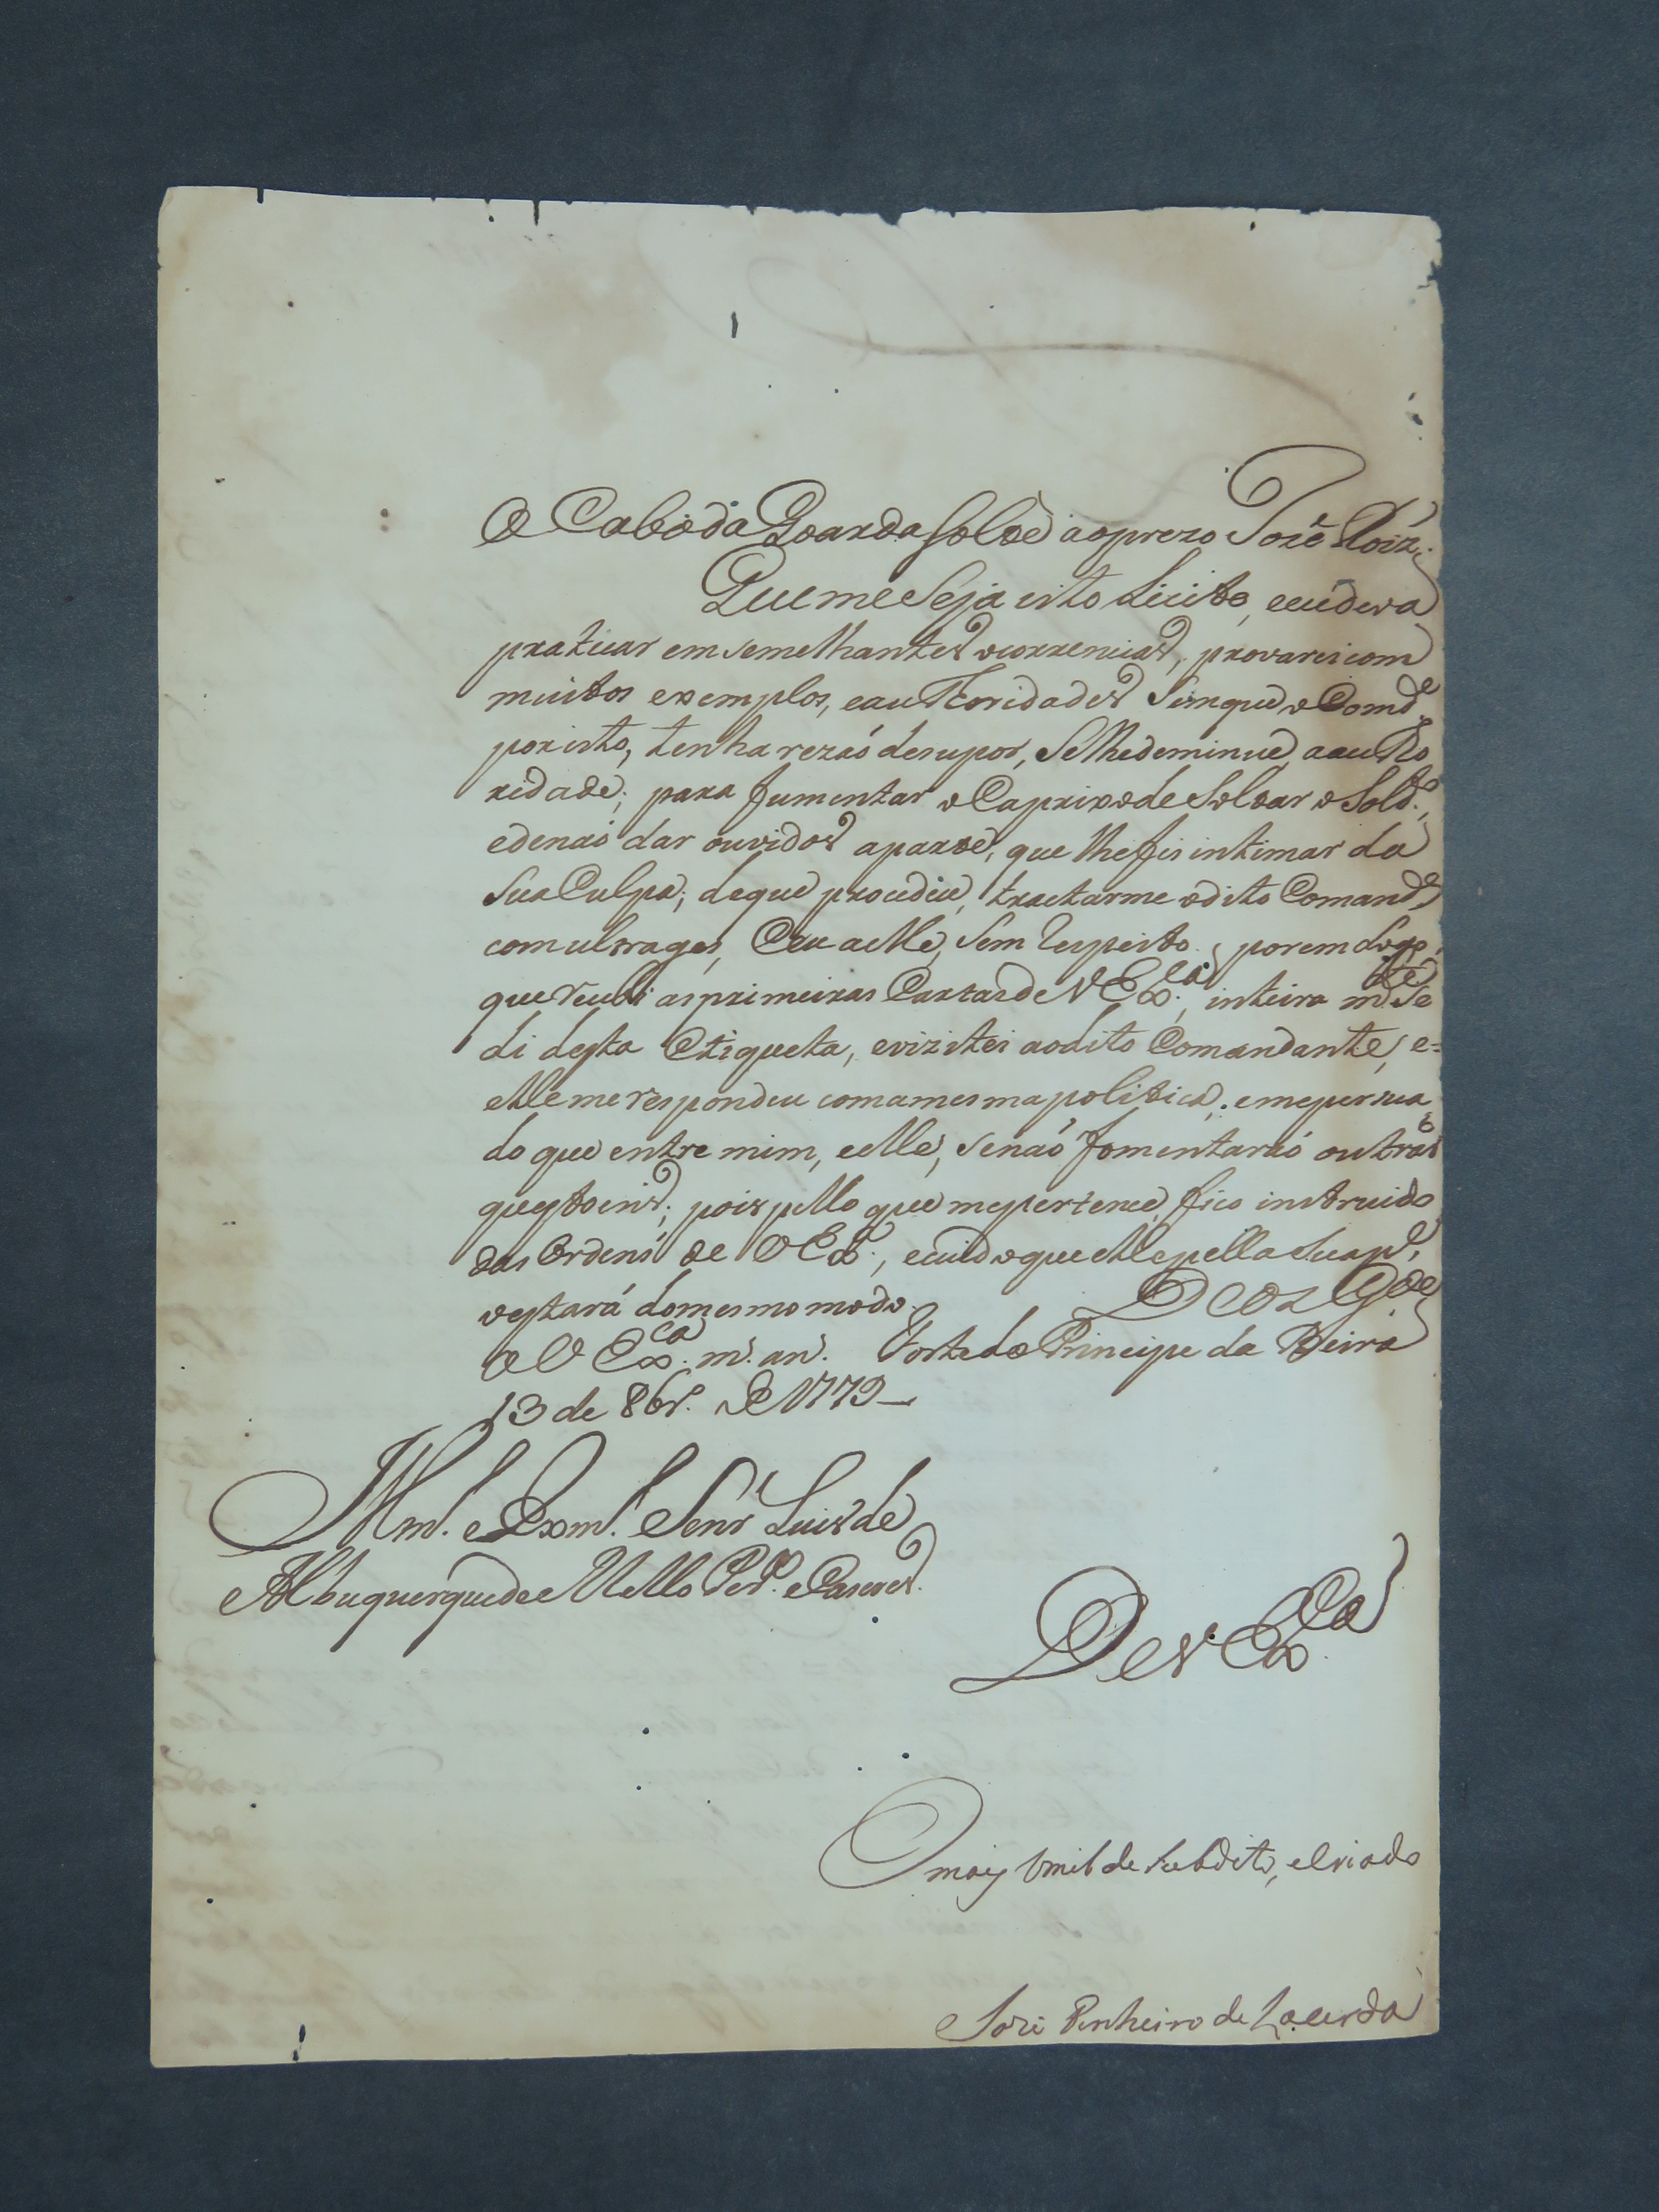 O Cabo da Goarda solte ao prezo José Roiz.
Que me seja isto licito, e eu devera
praticar em semelhantes ocorrencias, provarei com
muitos exemplos, e authoridades sem que o Comd.e
por isto, tenha rezaó de supor, se lhe deminue, a autho
ridade; para fumentar o Caprixo de Soltar o Sold.o,
e de naó dar ouvidos a parte, que lhe fis intimar da
sua Culpa; de que procedeu, tractarme o dito Comand.e
com ultrages, e eu a elle, sem respeito; porem logo,
que recebi as primeiras Cartas de V Ex.ca, inteira m.te se
di desta Etiqueta, e vizitei ao dito Comandante, e=
elle me respondeu com a mesma politica; e me persua
do que entre mim, e elle, se naó fomentaraó outras
questoens; pois pello que me pertence, fico instruido
das Ordens de V Ex.a, e cuido que elle pella sua p.e,
o estará do mesmo modo. Deos G.de
a V Ex.ca m.s an.s Forte do Principe da Beira
13 de 8br.o de 1779
Illm.o e Exm.o Senr Luis de
Albuquerque de Mello Per.a e Caceres.
De V. Ex.ca
O mais Umilde Subdito, e Criado
José Pinheiro de Lacerda